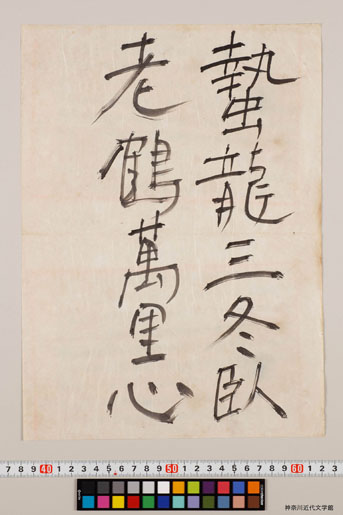 蟄龍三冬臥
老鶴萬里心
7 8 9 40 1 2 3 4 5 6 7 8 9 50 1 2 3 4 5 6 7 8 9 60 1 2 3
神奈川近代文学館